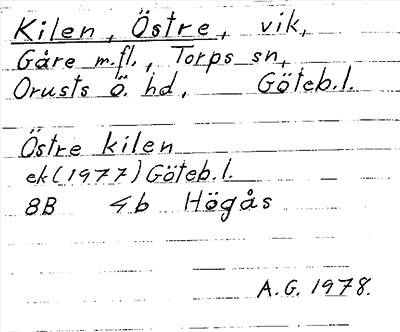 Kilen, Östre, vik,
Gåre m.fl., Torps sn,
Orusts ö. hd, Göteb.l.
Östre kilen
ek(1977) Göteb.l.
8B 4b Högås
A.G. 1978.